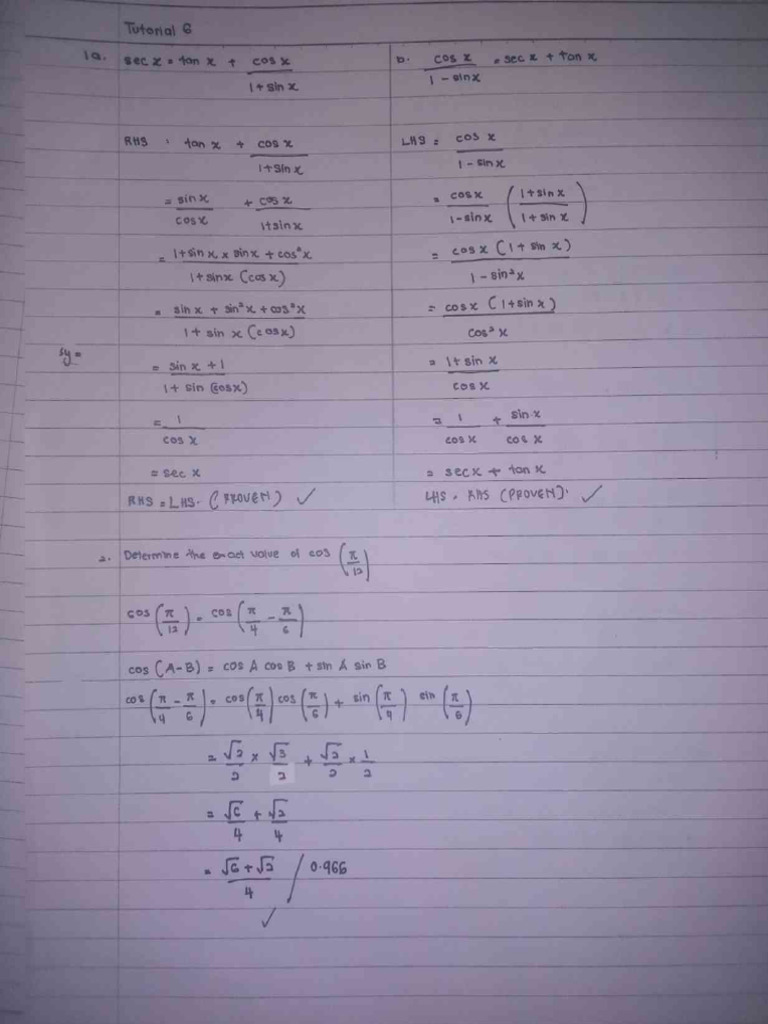 Tutorial 6
1a. sec x = tan x + cos x / 1 + sin x
RHS = tan x + cos x / 1 + sin x
= sin x / cos x + cos x / 1 + sin x
= 1 + sin x x sin x + cos² x / 1 + sin x (cos x)
= sin x + sin² x + cos² x / 1 + sin x (cos x)
sy =
= sin x + 1 / 1 + sin (cos x)
= 1 / cos x
= sec x
RHS = LHS. (PROVEN) ✓
b. cos x / 1 - sin x = sec x + tan x
LHS = cos x / 1 - sin x
= cos x / 1 - sin x (1 + sin x / 1 + sin x)
= cos x (1 + sin x) / 1 - sin² x
= cos x (1 + sin x) / cos² x
= 1 + sin x / cos x
= 1 / cos x + sin x / cos x
= sec x + tan x
LHS = RHS (PROVEN). ✓
2. Determine the exact value of cos (π / 12)
cos (π / 12) = cos (π / 4 - π / 6)
cos (A - B) = cos A cos B + sin A sin B
cos (π / 4 - π / 6) = cos (π / 4) cos (π / 6) + sin (π / 4) sin (π / 6)
= √2 / 2 x √3 / 2 + √2 / 2 x 1 / 2
= √6 / 4 + √2 / 4
= √6 + √2 / 4 / 0.966
✓